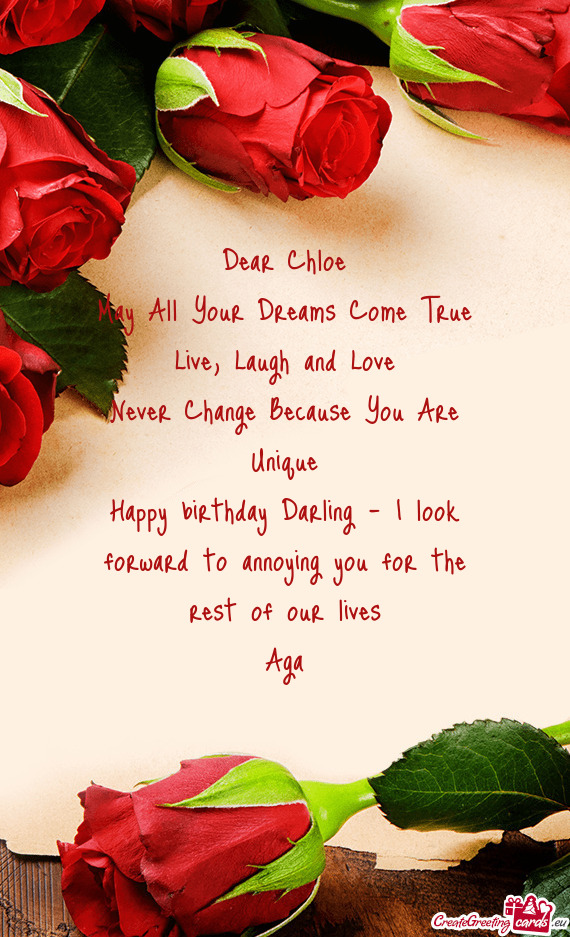 Dear Chloe
May All Your Dreams Come True
Live, Laugh and Love
Never Change Because You Are
Unique
Happy birthday Darling - I look
forward to annoying you for the
rest of our lives
Aga
CreateGreetingcards.eu